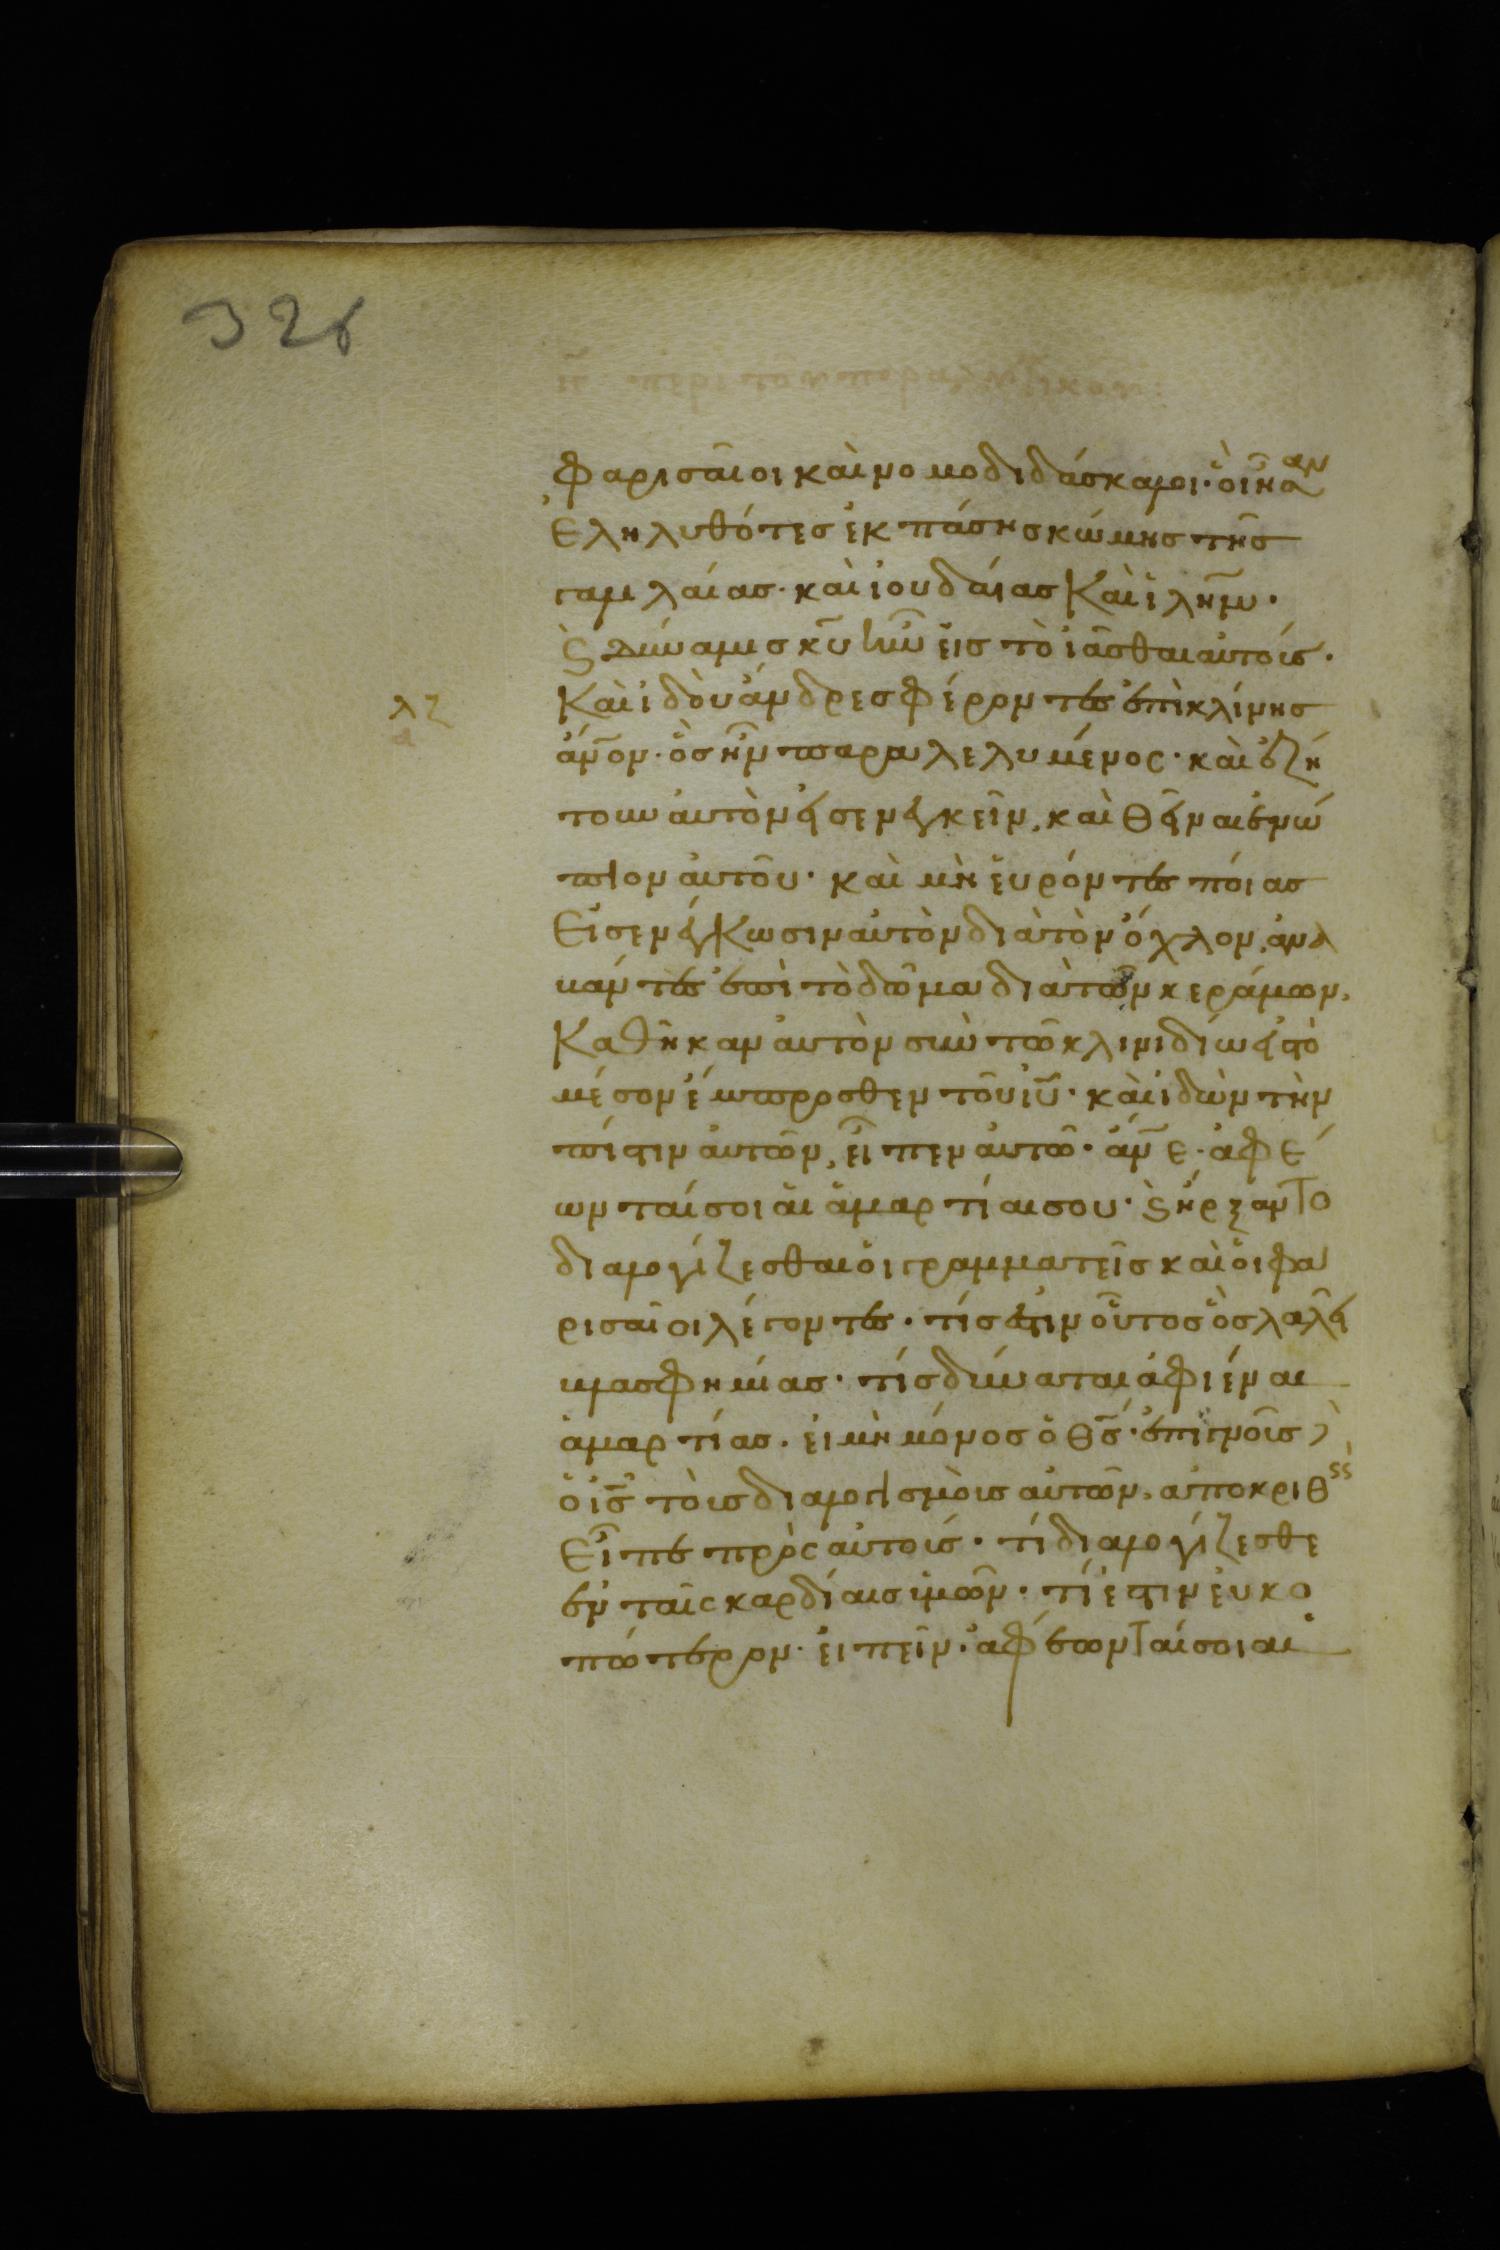 326
φαρισαῖοι καὶ νομοδιδάσκαλοι· οἳ ἦσαν
ἐληλυθότες ἐκ πάσης κώμης τῆς
γαλιλαίας· καὶ ἰουδαίας καὶ ἰλῆμ·
ϗ δύναμις κυ ἦν εἰς τὸ ἰᾶσθαι αὐτούς·
λζ
καὶ ἰδοὺ ἄνδρες φέροντες ἐπὶ κλίνης
ἄνον· ὃς ἦν παραλελυμένος· καὶ ἐζή
τουν αὐτὸν εἰσενεγκεῖν, καὶ θεῖναι ἐνώ
πιον αὐτοῦ· καὶ μὴ εὑρόντες ποίας
εἰσενέγκωσιν αὐτὸν διὰ τὸν ὄχλον, ἀνα
βάντες ἐπὶ τὸ δῶμα διὰ τῶν κεράμων,
καθῆκαν αὐτὸν σὺν τῶ κλινιδίω εἰς τὸ
μέσον ἔμπροσθεν τοῦ ιυ· καὶ ἰδὼν τὴν
πίστιν αὐτῶν, εἶπεν αὐτῶ· ἄνε· ἀφέ
ωνταί σοι αἱ ἁμαρτίαι σου· ϗ ἤρξαντο
διαλογίζεσθαι οἱ γραμματεῖς καὶ οἱ φα
ρισαῖοι λέγοντες· τίς ἐστιν οὗτος ὃς λαλεῖ
βλασφημίας· τίς δύναται ἀφιέναι
ἁμαρτίας· εἰ μὴ μόνος ὁ θς· ἐπιγνοὺς δὲ
ὁ ις τοὺς διαλογισμοὺς αὐτῶν, ἀποκριθεὶς
εἶπε πρὸς αὐτούς· τί διαλογίζεσθε
ἐν ταῖς καρδίαις ὑμῶν· τί ἐστιν εὐκο
πώτερον· εἰπεῖν· ἀφέωνταί σοι αἱ